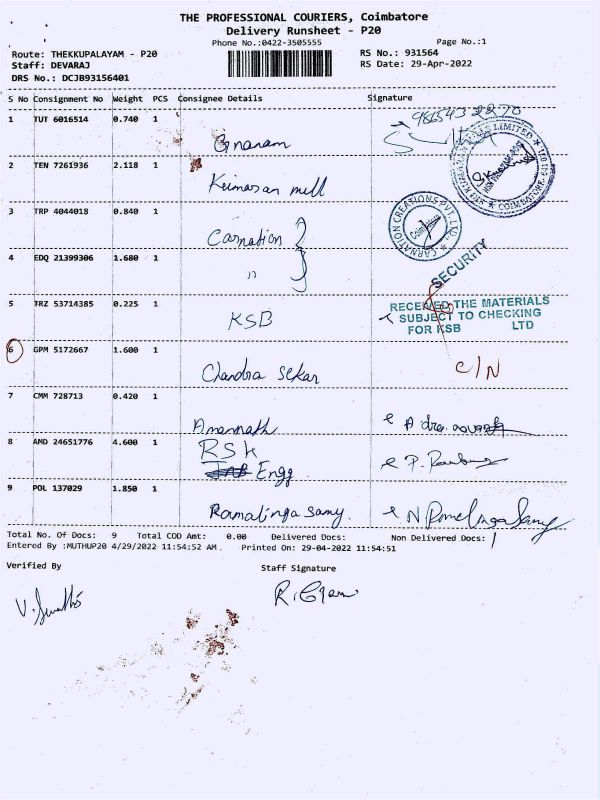 THE PROFESSIONAL COURIERS, Coimbatore
Delivery Runsheet - P20
Phone No.:0422-3505555
Page No.:1
Route: THEKKUPALAYAM - P20
RS No.: 931564
Staff: DEVARAJ
RS Date: 29-Apr-2022
DRS No.: DCJB93156401
S No Consignment No Weight PCS Consignee Details Signature
9865432270
1 TUT 6016514 0.740 1 Gnanam
2 TEN 7261936 2.118 1 Kumaran mill
3 TRP 4044018 0.840 1 Carnation
CARNATION CREATIONS PVT. LTD.
Coimbatore
COIMBATORE
LIMITED
4 EDQ 21399306 1.680 1 "
SECURITY
5 TRZ 53714385 0.225 1 KSB
RECEIVED THE MATERIALS
SUBJECT TO CHECKING
FOR KSB LTD
6 GPM 5172667 1.600 1 Chandra Sekar C/N
7 CMM 728713 0.420 1 Amarnath
8 AMD 24651776 4.600 1 RSK
Engg
9 POL 137029 1.850 1 Ramalinga Samy. N Ramalinga Samy
Total No. Of Docs: 9 Total COD Amt: 0.00 Delivered Docs: Non Delivered Docs: 1
Entered By :MUTHUP20 4/29/2022 11:54:52 AM. Printed On: 29-04-2022 11:54:51
Verified By
Staff Signature